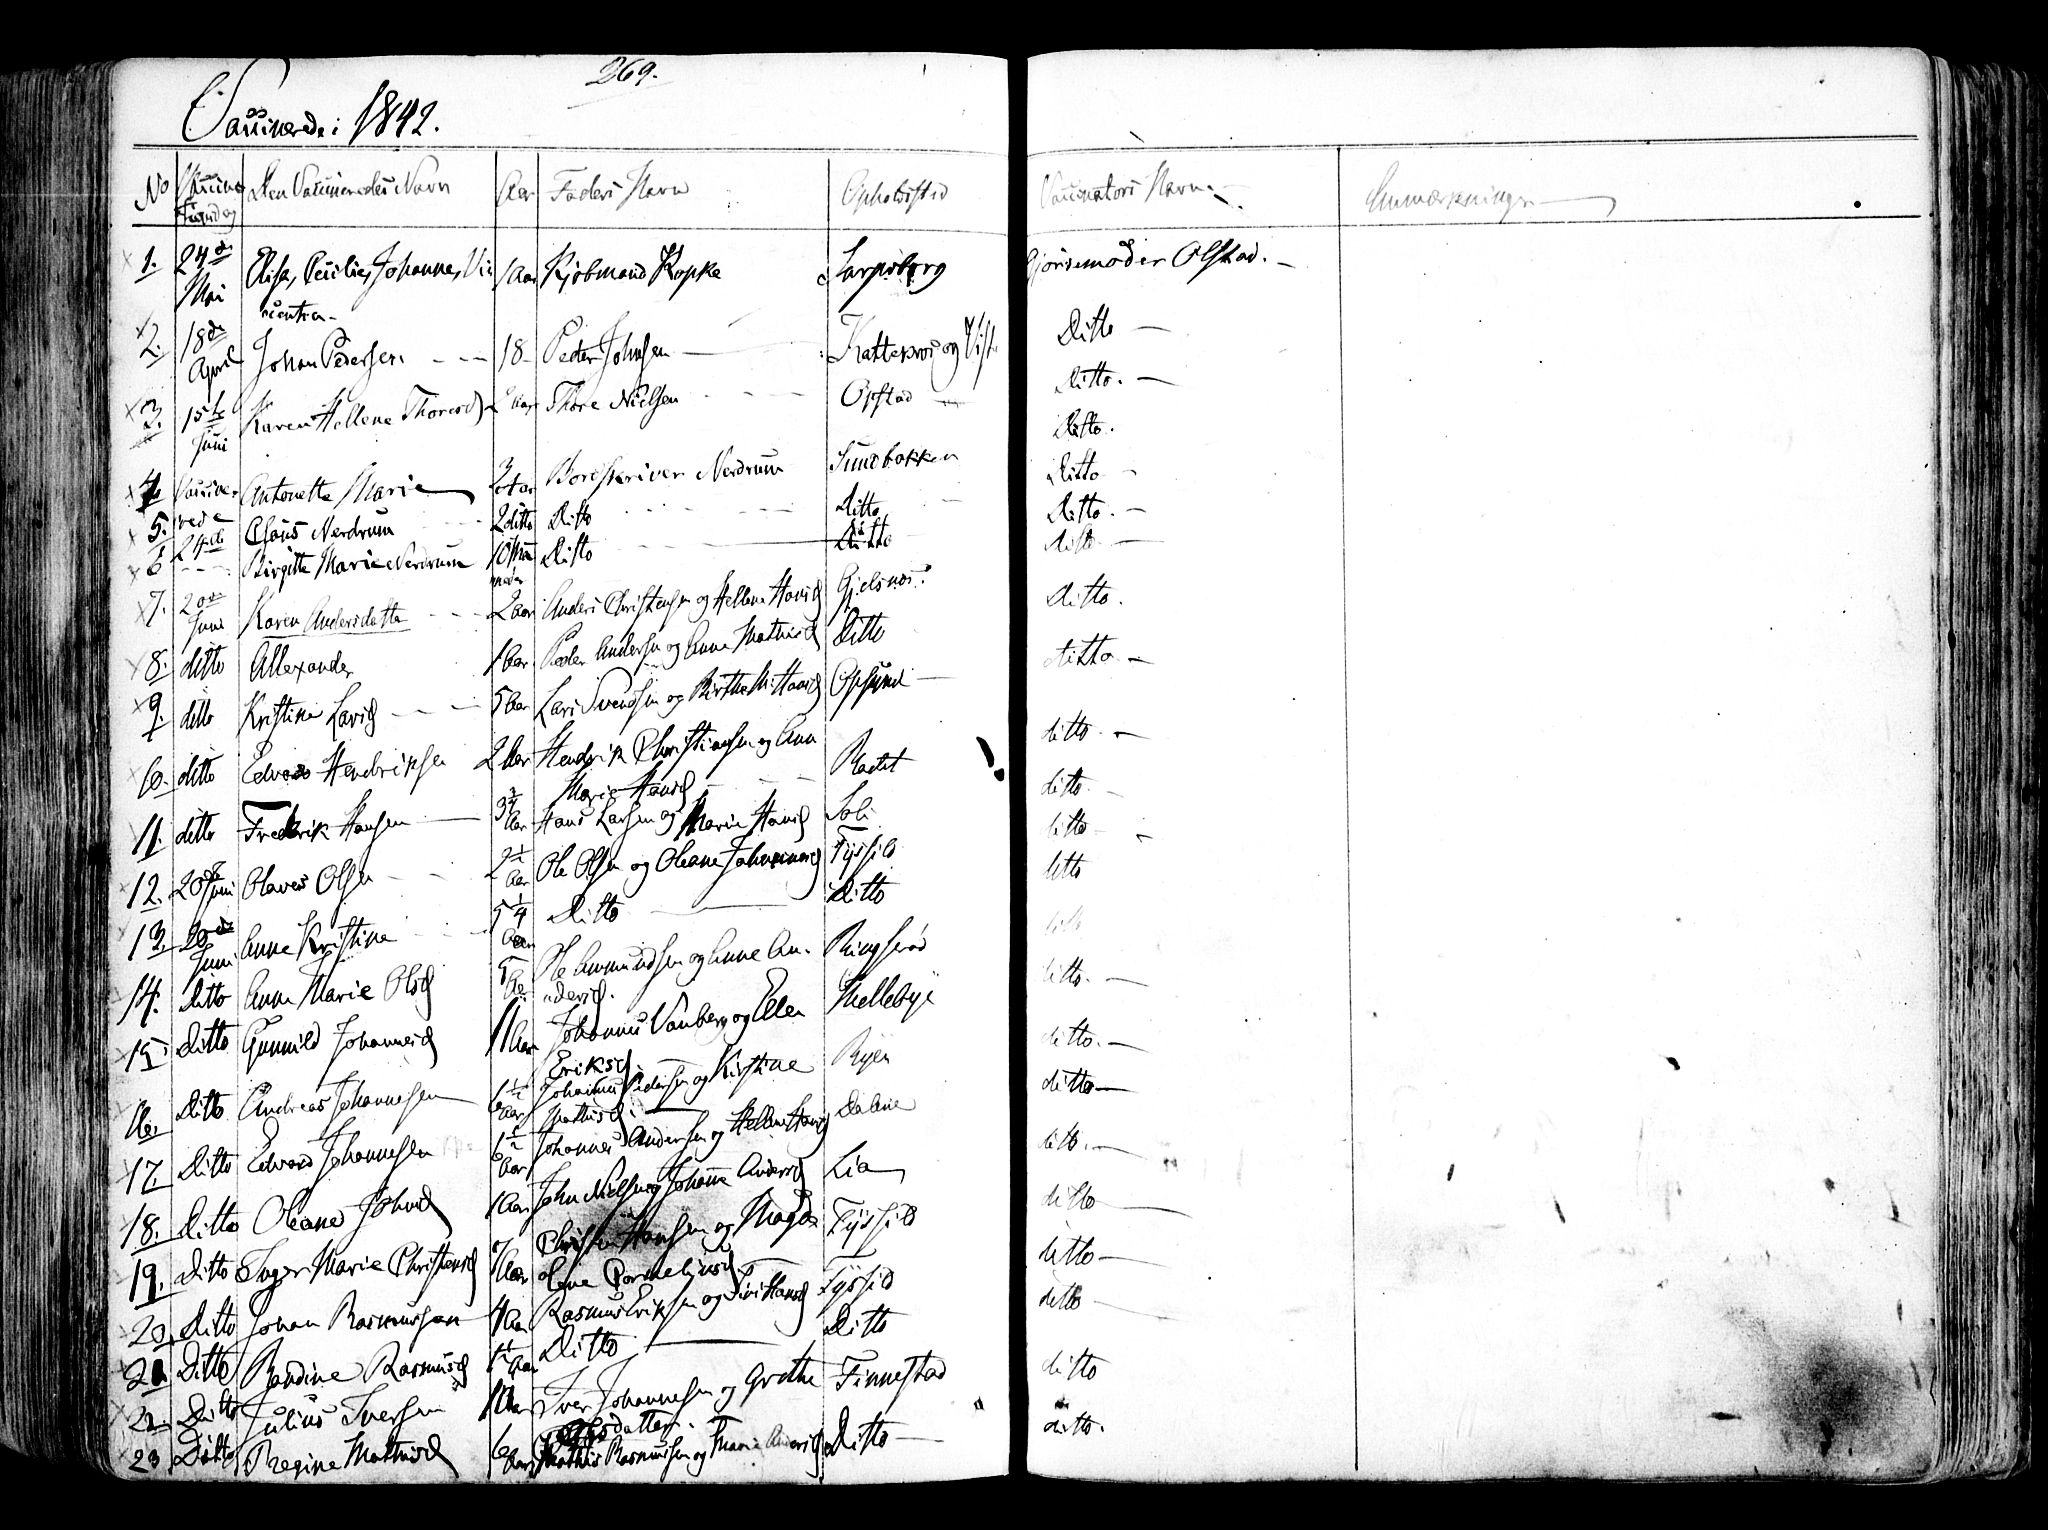 269.
Vaccinerede i 1842.
No Den Vaccineredes Navn Aar Faders Navn Opholdssted Vaccinators Navn. Anmærkninger
1. 24de Mai Elise, Cecilie, Johanne, Vin 1 Aar Kjøbmand Kopke Sarpsborg Gjordemoder Olstad.
centia
2. 18de April Johan Pedersen 18 Peder Johnsen og Ditto
3. 15de Juni Karen Hellene Thoresd 2 Aar Thore Nielsen Opstad Ditto.
4. Vaccine- Antonette Marie 3 Aar Nerdrum Sundbakken Ditto.
5. rede Claus Nerdrum 2 ditto Ditto Ditto Ditto
6 24de Birgitte Marie Nerdrum 10 Maa Ditto Ditto Ditto.
neder
7. 20de Juni Karen Andersdatter 2 aar Anders Christensen og Hellene Hansd Gjelsnes Ditto.
8. ditto Allexander 1 Aar Peder Andersen og Anne Mathisd Ditto ditto
9. ditto Kristine Larsd 5 Aar Lars Svendsen og Birthe M. Hansd Opsund ditto
10. ditto Edvard Hendriksen 2 Aar Hendrik Christiansen og Ann ditto
Marie Hansd
11. ditto Fredrik Hansen Aar Hans Larsen og Marie Hansd Soli ditto
12. 20de Juni Olaves Olsen 2 1/2 Aar Ole Olsen og Oleane Johannesd Tyssild ditto
13. 20de Juni Anne Kristine 5 1/4 Aar Ditto Ditto ditto
14. Ditto Anne Marie Olsd 5 Aar Ole Ammundsen og Anne An- Ringserød ditto.
dersd.
15. Ditto Gunnild Johannesd 11 Aar Johannes Vanberg og Ellen Hellebye ditto.
Eriksd
16. Ditto Andreas Johannesen 6 1/2 Aar Johannes Pedersen og Kirstine Ryen ditto
Mathisd
17. Ditto Edvard Johannesen 6 1/2 Aar Johannes Andersen og Hellene Hansd ditto.
18. Ditto Oleane Johnsd 1 Aar John Nielsen og Johanne Andersd Lia ditto
19. Ditto Inger Marie Christensd 7 Aar Christen Hansen og Magda Tyssild ditto
lene Corneliusd
20. Ditto Johan Rasmussen 4 Aar Rasmus Eriksen og Siri Hansd Tyssild ditto
21. Ditto Randine Rasmusd 1 1/2 Aar Ditto Ditto
22. Ditto Julius Iversen 1 Aar Iver Johannesen og Grethe Finnestad ditto
datter.
23. Ditto Regine Mathisd 6 Aar Mathis Rasmussen og Marie Andersd Ditto ditto.